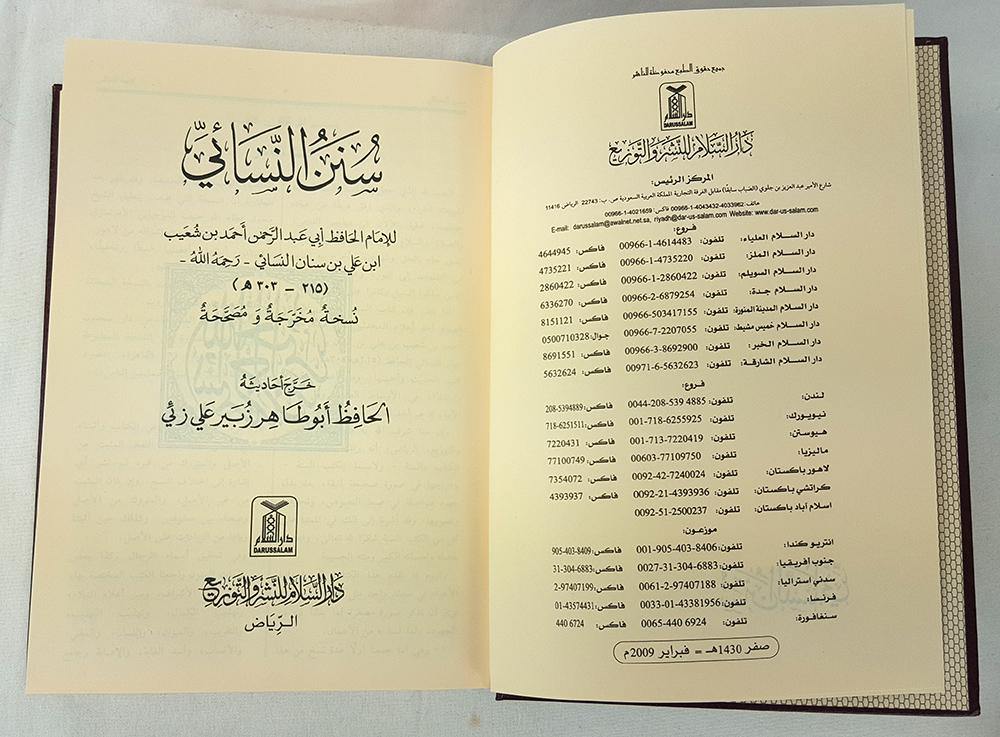 جميع حقوق الطبع محفوظة للناشر
دار السلام
DARUSSALAM
دار السلام للنشر والتوزيع
المركز الرئيس:
شارع الأمير عبد العزيز بن جلوي (الضباب سابقًا) مقابل الغرفة التجارية المملكة العربية السعودية ص. ب: 22743 الرياض 11416
هاتف: 00966-1-4043432-4033962 فاكس: 00966-1-4021659
E-mail: darussalam@awalnet.net.sa, riyadh@dar-us-salam.com Website: www.dar-us-salam.com
فروع:
دار السلام العلياء: تلفون: 00966-1-4614483 فاكس: 4644945
دار السلام الملز: تلفون: 00966-1-4735220 فاكس: 4735221
دار السلام السويلم: تلفون: 00966-1-2860422 فاكس: 2860422
دار السلام جدة: تلفون: 00966-2-6879254 فاكس: 6336270
دار السلام المدينة المنورة: تلفون: 00966-503417155 فاكس: 8151121
دار السلام خميس مشيط: تلفون: 00966-7-2207055 جوال: 0500710328
دار السلام الخبر: تلفون: 00966-3-8692900 فاكس: 8691551
دار السلام الشارقة: تلفون: 00971-6-5632623 فاكس: 5632624
فروع:
لندن: تلفون: 0044-208-539 4885 فاكس: 208-5394889
نيويورك: تلفون: 001-718-6255925 فاكس: 718-6251511
هيوستن: تلفون: 001-713-7220419 فاكس: 7220431
ماليزيا: تلفون: 00603-77109750 فاكس: 77100749
لاهور باكستان: تلفون: 0092-42-7240024 فاكس: 7354072
كراتشي باكستان: تلفون: 0092-21-4393936 فاكس: 4393937
اسلام آباد باكستان: تلفون: 0092-51-2500237
موزعون:
انتريو كندا: تلفون: 001-905-403-8406 فاكس: 905-403-8409
جنوب أفريقيا: تلفون: 0027-31-304-6883 فاكس: 31-304-6883
سدني استراليا: تلفون: 0061-2-97407188 فاكس: 2-97407199
فرنسا: تلفون: 0033-01-43381956 فاكس: 01-43574431
سنغافورة: تلفون: 0065-440 6924 فاكس: 440 6924
صفر 1430هـ = فبراير 2009م
سُنَنُ النَّسَائِيِّ
للإمام الحافظ أبي عبد الرحمٰن أحمد بن شعيب
ابن علي بن سنان النسائي - رَحِمَهُ اللهُ -
(٢١٥ - ٣٠٣ هـ)
نُسخةٌ مُخَرَّجَةٌ وَ مُصَحَّحَةٌ
خَرَّجَ أحاديثَهُ
الحَافِظُ أبُو طَاهِر زُبَير عَلي زَئي
دار السلام
DARUSSALAM
دار السلام للنشر والتوزيع
الرِّيَاض